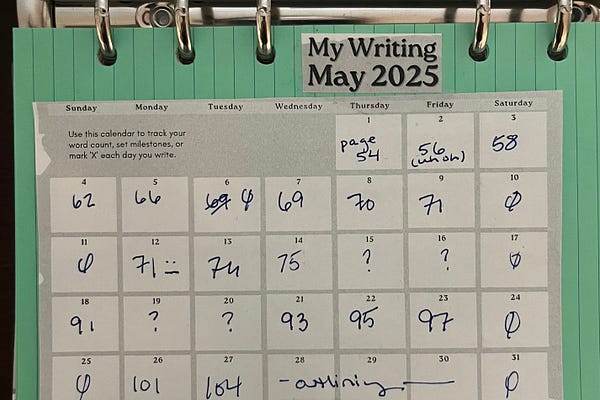 My Writing
May 2025
Sunday Monday Tuesday Wednesday Thursday Friday Saturday
Use this calendar to track your
word count, set milestones, or
mark 'X' each day you write.
1 2 3
page
54 56 58
(uh oh)
4 5 6 7 8 9 10
62 66 69 φ 69 70 71 φ
11 12 13 14 15 16 17
φ 71 74 75 ? ? φ
18 19 20 21 22 23 24
91 ? ? 93 95 97 φ
25 26 27 28 29 30 31
φ 101 104 - outlining - φ